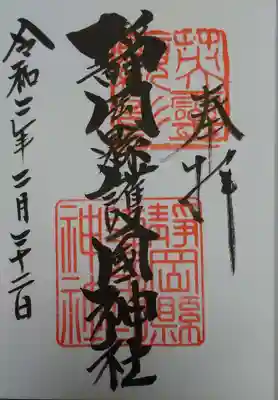 奉拝
靜岡縣護國神社
靜岡縣
神社
令和二年二月二十二日